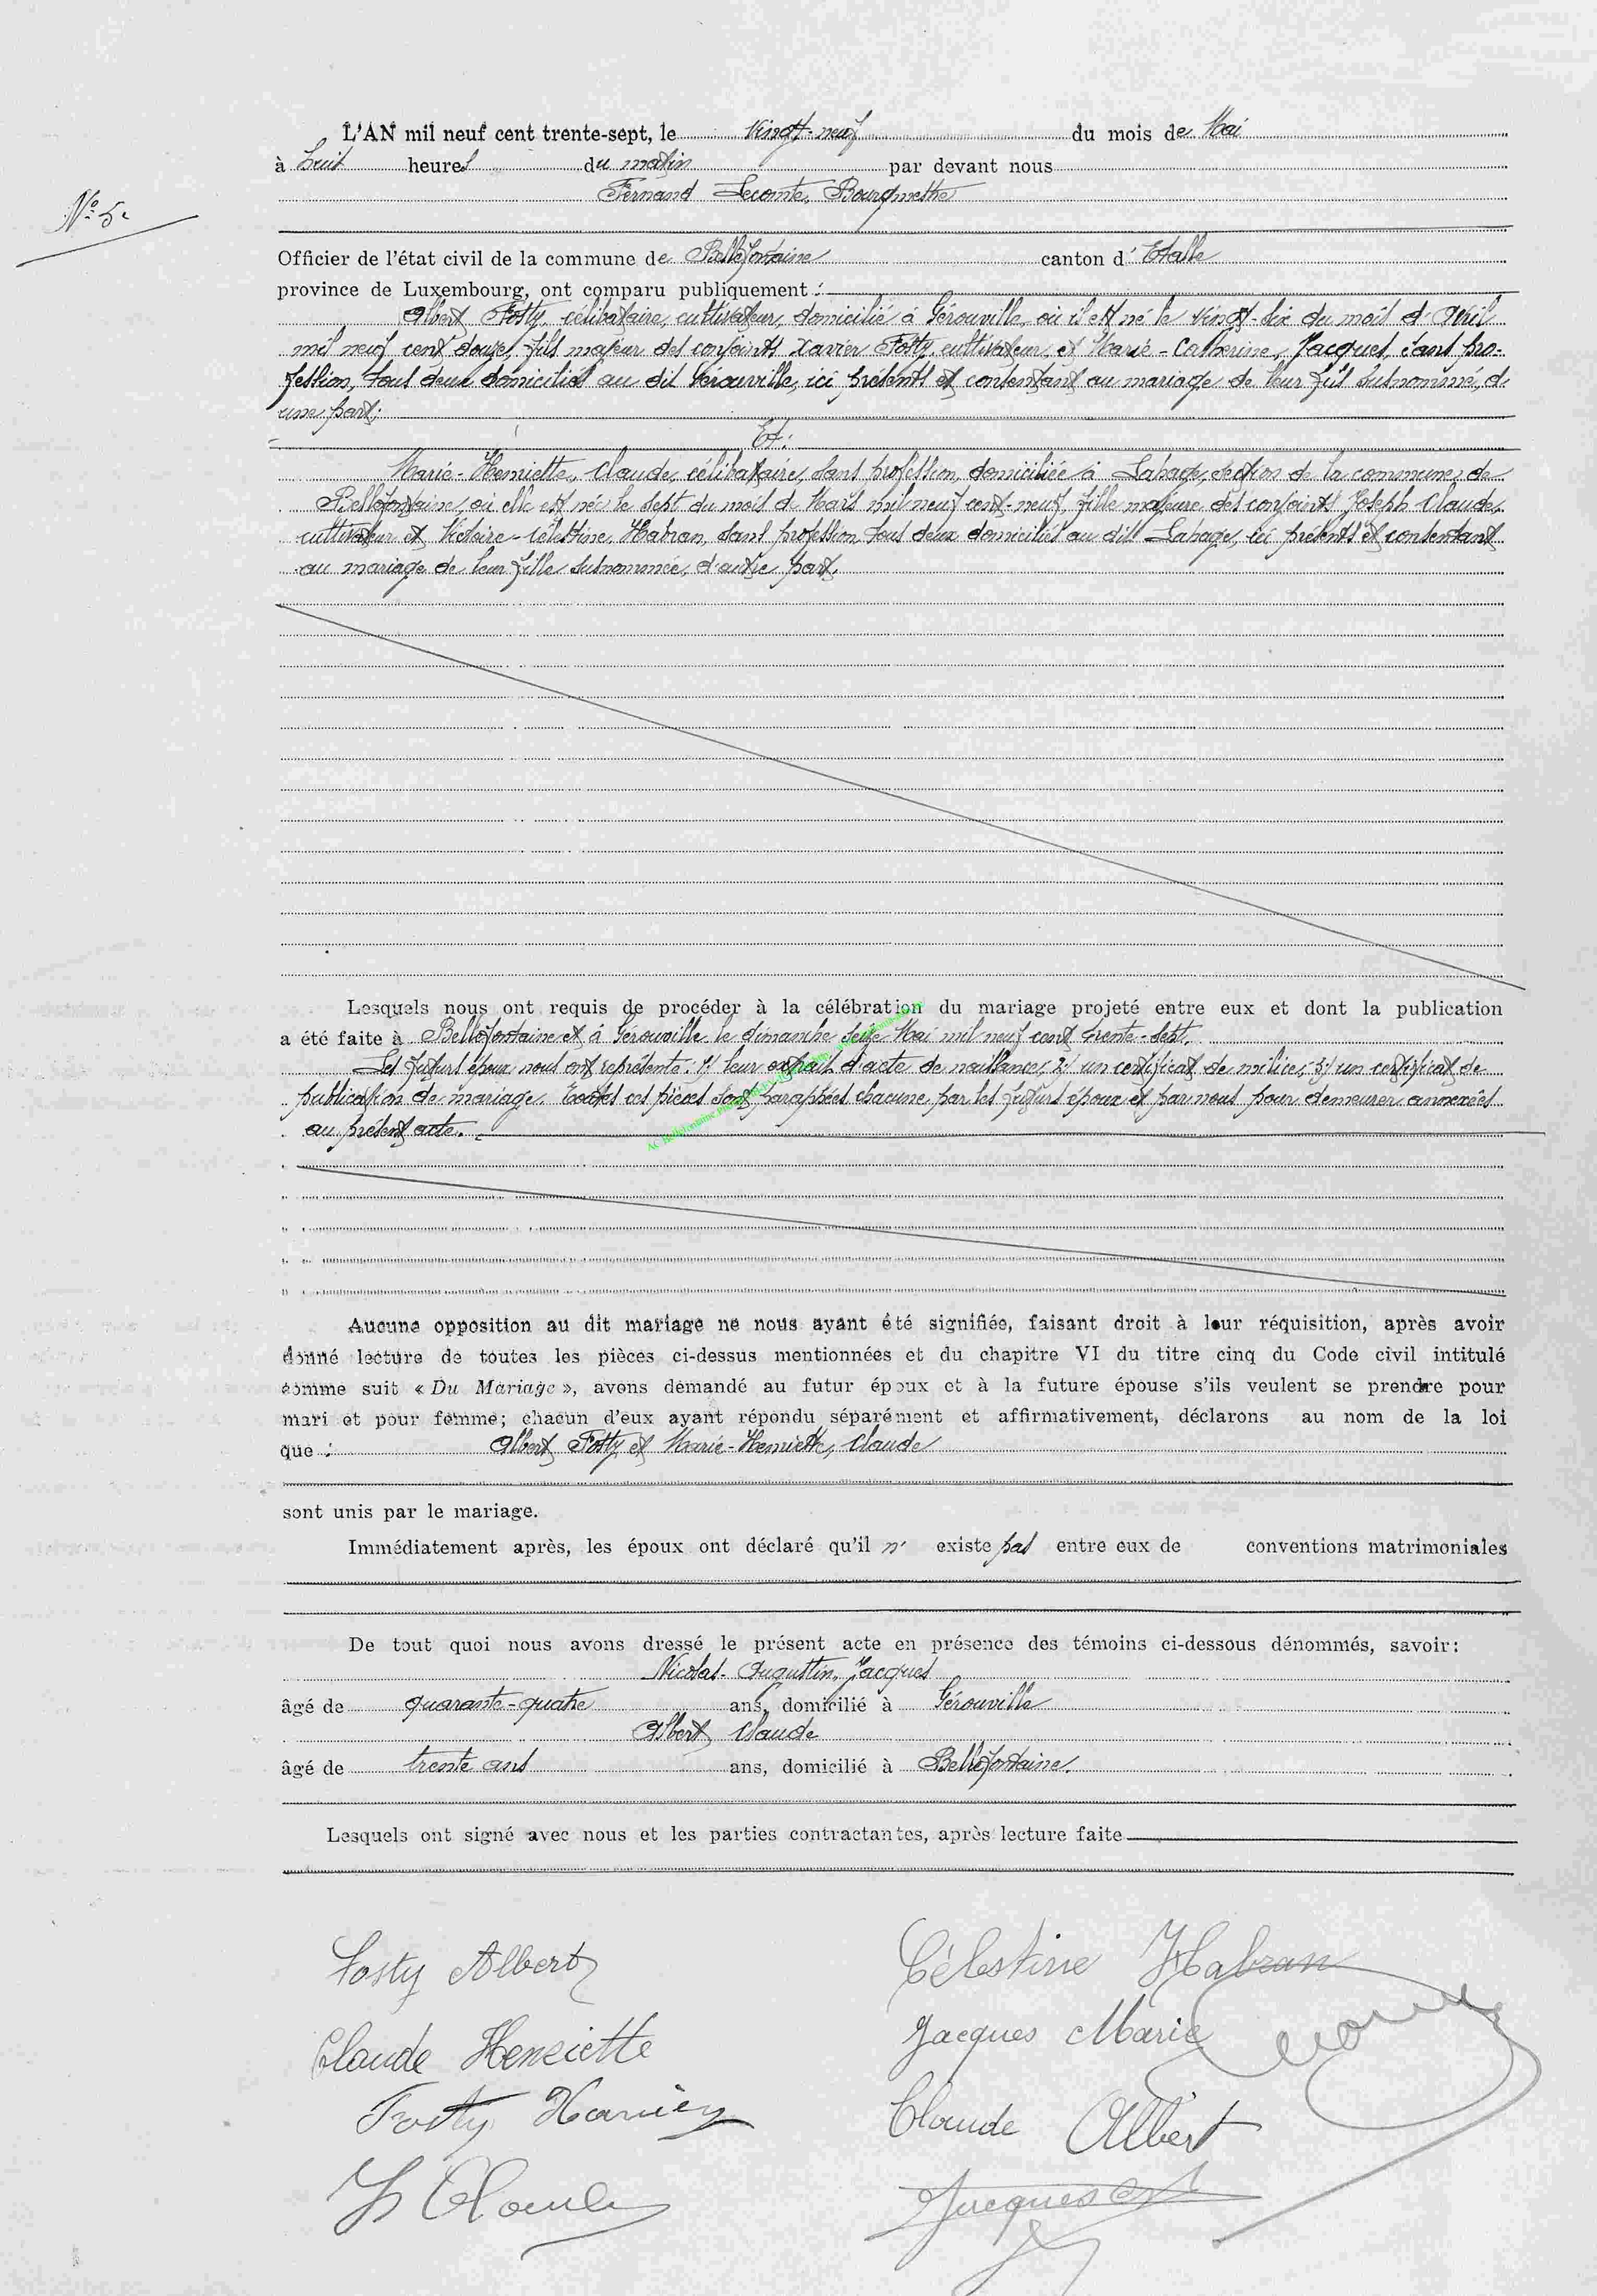 L'AN mil neuf cent trente-sept, le vingt-neuf du mois de Mai
à huit heures du matin par devant nous
Fernand Lecomte, Bourgmestre
N° 5.
Officier de l'état civil de la commune de Bellefontaine canton d' Etalle
province de Luxembourg, ont comparu publiquement :
Albert Fosty, célibataire, cultivateur, domicilié à Gérouville, où il est né le vingt-six du mois d'Avril
mil neuf cent douze, fils majeur des conjoints Xavier Fosty, cultivateur, et Marie-Catherine, Jacques, sans pro-
fession, tous deux domiciliés au dit Gérouville, ici présents et consentant au mariage de leur fils susnommé, d'
une part;
Et:
Marie-Henriette, Claude, célibataire, sans profession, domiciliée à Lahage, section de la commune de
Bellefontaine, où elle est née le sept du mois de Mars mil neuf cent-neuf, fille majeure des conjoints Joseph Claude,
cultivateur et Victoire-Célestine, Habran, sans profession tous deux domiciliés au dit Lahage, ici présents et consentant
au mariage de leur fille susnommée, d'autre part.
Lesquels nous ont requis de procéder à la célébration du mariage projeté entre eux et dont la publication
a été faite à Bellefontaine et à Gérouville le dimanche seize Mai mil neuf cent trente-sept.
Les futurs époux nous ont représenté: 1/ leur extrait d'acte de naissance; 2/ un certificat de milice; 3/ un certificat de
publication de mariage. Toutes ces pièces sont paraphées chacune par les futurs époux et par nous pour demeurer annexées
au présent acte.
Aucune opposition au dit mariage ne nous ayant été signifiée, faisant droit à leur réquisition, après avoir
donné lecture de toutes les pièces ci-dessus mentionnées et du chapitre VI du titre cinq du Code civil intitulé
comme suit « Du Mariage », avons demandé au futur époux et à la future épouse s'ils veulent se prendre pour
mari et pour femme; chacun d'eux ayant répondu séparément et affirmativement, déclarons au nom de la loi
que : Albert Fosty et Marie-Henriette, Claude
sont unis par le mariage.
Immédiatement après, les époux ont déclaré qu'il n' existe pas entre eux de conventions matrimoniales
De tout quoi nous avons dressé le présent acte en présence des témoins ci-dessous dénommés, savoir:
Nicolas-Augustin, Jacques
âgé de quarante-quatre ans, domicilié à Gérouville
Albert Claude
âgé de trente ans ans, domicilié à Bellefontaine.
Lesquels ont signé avec nous et les parties contractantes, après lecture faite
Fosty Albert
Célestine Habran
Claude Henriette
Jacques Marie
Fosty Xavier
Claude Albert
Js Claude
Jacques